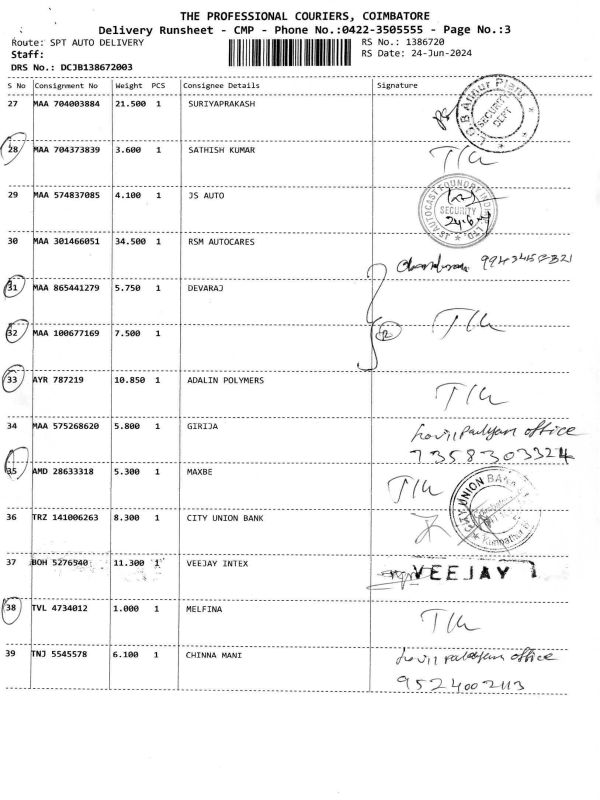 THE PROFESSIONAL COURIERS, COIMBATORE
Delivery Runsheet - CMP - Phone No.:0422-3505555 - Page No.:3
Route: SPT AUTO DELIVERY RS No.: 1386720
Staff: RS Date: 24-Jun-2024
DRS No.: DCJB138672003
S No Consignment No Weight PCS Consignee Details Signature
27 MAA 704003884 21.500 1 SURIYAPRAKASH
SECURITY DEPT
28 MAA 704373839 3.600 1 SATHISH KUMAR
29 MAA 574837085 4.100 1 JS AUTO
JS AUTOCAST FOUNDRY INDIA LTD.
SECURITY
30 MAA 301466051 34.500 1 RSM AUTOCARES
31 MAA 865441279 5.750 1 DEVARAJ
32 MAA 100677169 7.500 1
33 AYR 787219 10.850 1 ADALIN POLYMERS
34 MAA 575268620 5.800 1 GIRIJA
office
7358303324
35 AMD 28633318 5.300 1 MAXBE
36 TRZ 141006263 8.300 1 CITY UNION BANK
CITY UNION BANK
37 BOH 5276940 11.300 1 VEEJAY INTEX
VEEJAY
38 TVL 4734012 1.000 1 MELFINA
39 TNJ 5545578 6.100 1 CHINNA MANI
office
9524002113